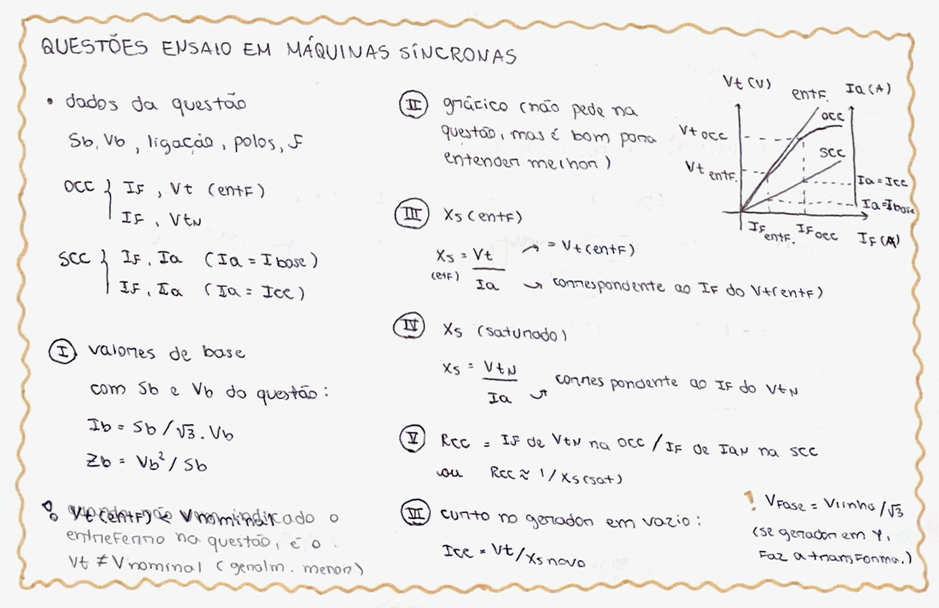 QUESTÕES ENSAIO EM MÁQUINAS SÍNCRONAS
• dados da questão
Sb, Vb, ligação, polos, f
OCC } IF, Vt (entF)
IF, VtN
SCC } IF, Ia (Ia = Ibase)
IF, Ia (Ia = Icc)
I valores de base
com Sb e Vb da questão:
Ib = Sb/√3.Vb
Zb = Vb²/Sb
Vt(entF) < Vnominal
entreferro na questão, é o
Vt ≠ Vnominal (geralm. menor)
II gráfico (não pede na
questão, mas é bom para
entender melhor)
III Xs (entF)
Xs = Vt → = Vt(entF)
(entF) Ia → correspondente ao IF do Vt(entF)
IV Xs (saturado)
Xs = VtN
Ia → correspondente ao IF do VtN
V Rcc = IF de VtN na OCC / IF de IaN na SCC
ou Rcc ≈ 1/Xs(sat)
III curto no gerador em vazio:
Icc = Vt/Xs novo
Vt (V) entF. Ia (A)
OCC
Vt OCC
SCC
Vt entF.
Ia = Icc
Ia = Ibase
IF entF. IF OCC IF (A)
! VFase = Vlinha/√3
(se gerador em Y,
Faz a transForma.)